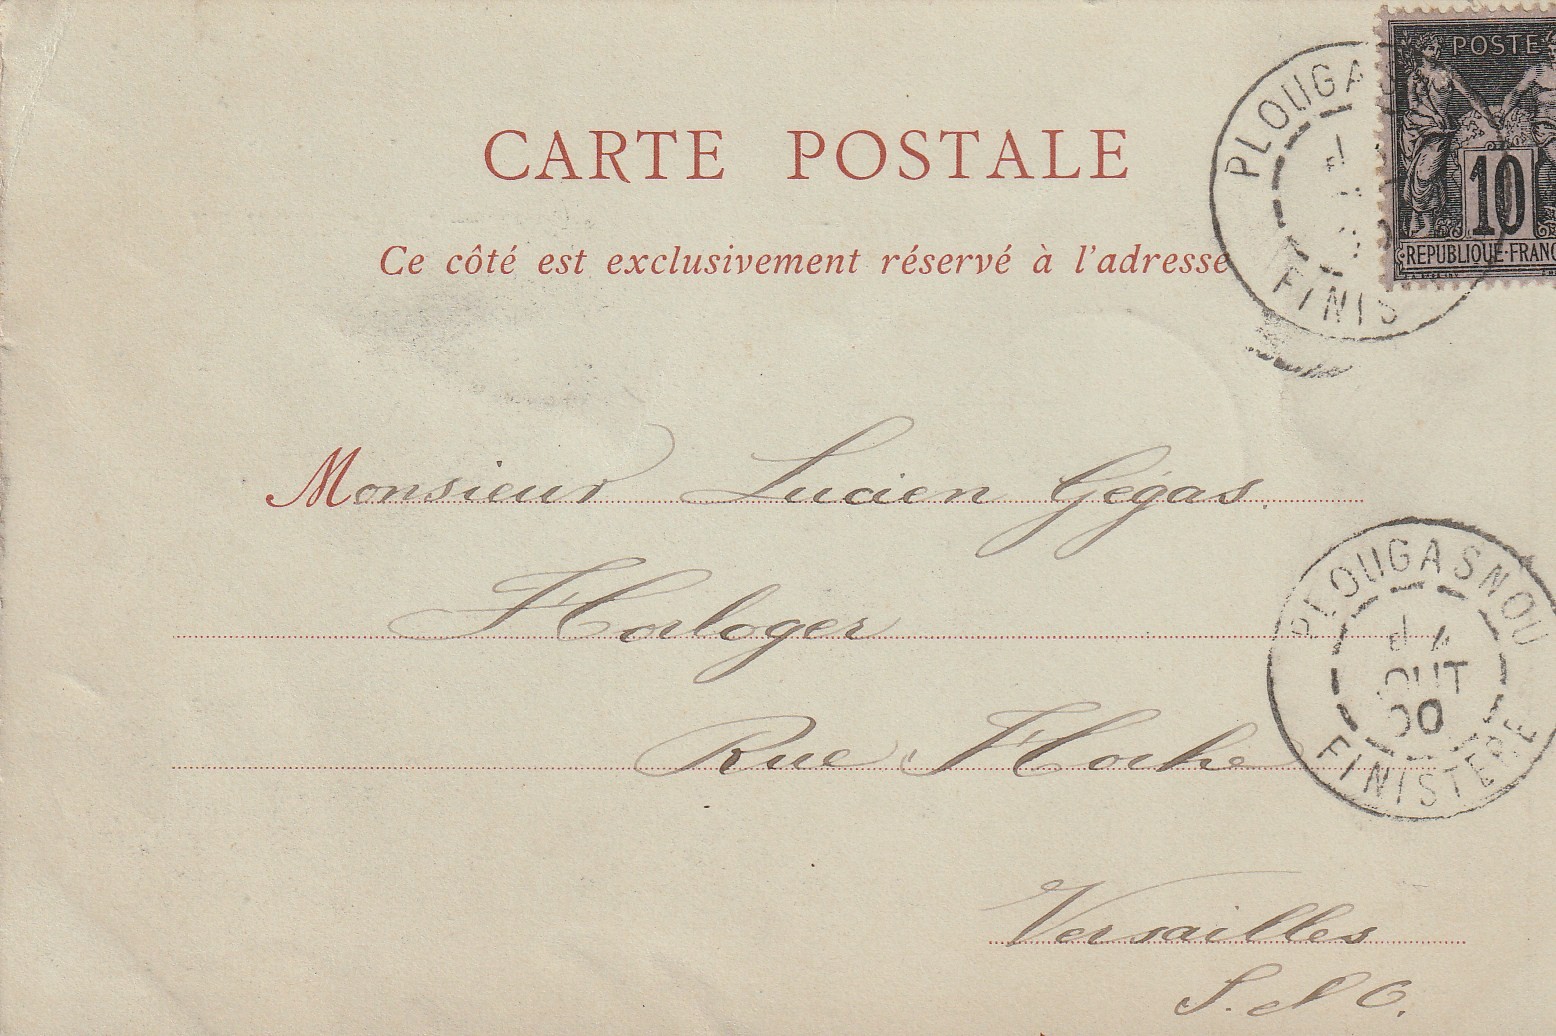 CARTE POSTALE
Ce côté est exclusivement réservé à l'adresse
POSTE
10
REPUBLIQUE FRANC
PLOUGA
FINIS
Monsieur Lucien Gégas.
Horloger
Rue Hoche
Versailles
S. et O.
PLOUGASNOU
4
OUT
00
FINISTERE